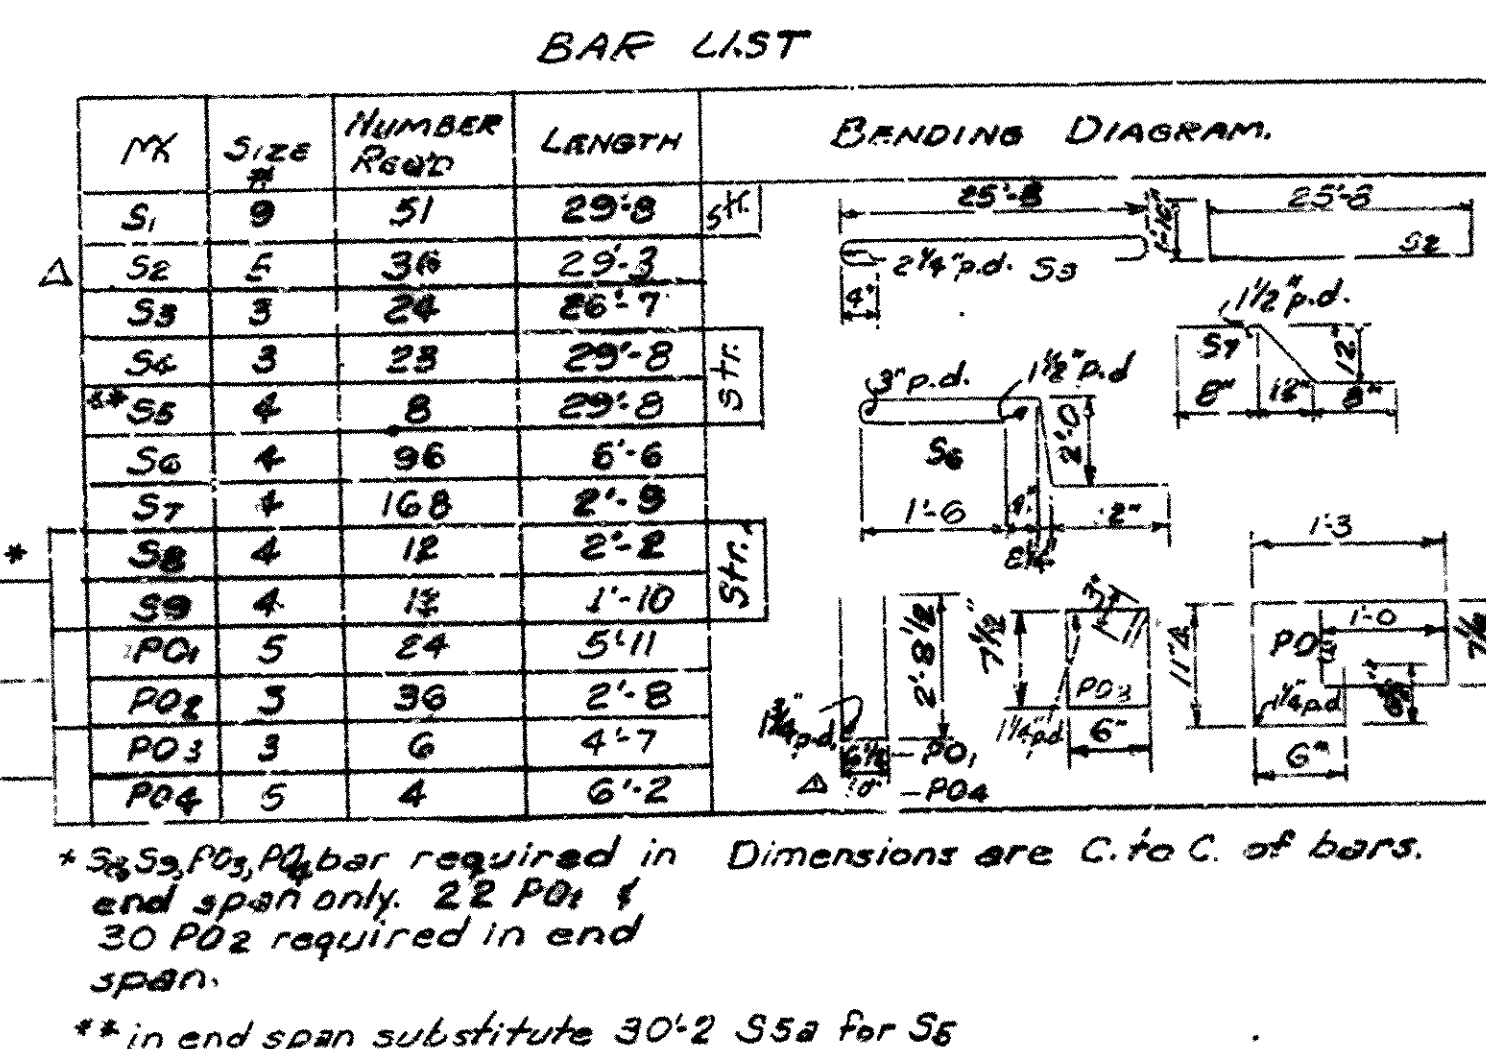 BAR LIST
MK SIZE # NUMBER REQ'D LENGTH BENDING DIAGRAM.
S1 9 51 29'-8 Str.
S2 5 36 29'-3
S3 3 24 26'-7
S4 3 23 29'-8 Str.
** S5 4 8 29'-8
S6 4 96 6'-6
S7 4 168 2'-9
* S8 4 12 2'-2 Str.
S9 4 1'-10
PO1 5 24 5'-11
PO2 3 36 2'-8
PO3 3 6 4'-7
PO4 5 4 6'-2
25'-8
2 1/4" p.d. S3
4"
25'-8
S2
1 1/2" p.d.
S7
12"
8" 12" 8"
3" p.d. 1 1/2" p.d
S6
2'-0
1'-6
2'-8 1/2
1 3/4" p.d.
PO1
PO4
7 1/2"
3"
PO3
1 1/4" p.d
6"
1'-3
11"
1'-0
1 1/4" p.d
6"
* S8, S9, PO3, PO4 bar required in
end span only. 22 PO1 &
30 PO2 required in end
span.
Dimensions are C. to C. of bars.
** in end span substitute 30'-2 S5a for S5